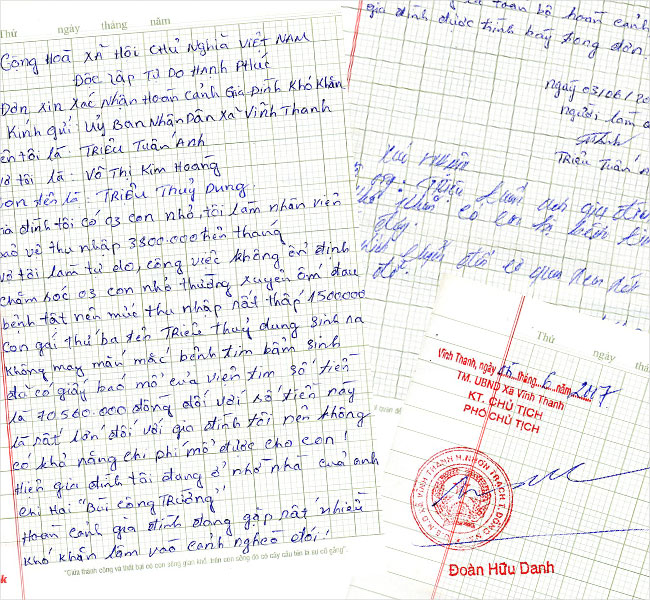 Thứ ngày tháng năm
Cộng Hoà XÃ Hội CHủ NGHĩA VIỆT NAM
Độc lập Tự Do Hạnh Phúc
Đơn xin Xác Nhận Hoàn Cảnh Gia Đình Khó Khăn
Kính gửi: Uỷ Ban Nhân Dân Xã Vĩnh Thanh
ên tôi là: TRIỆU Tuấn Anh
ợ tôi là: Võ Thị Kim Hoàng
on tên là: TRIỆU Thuỳ Dung
ia đình tôi có 03 con nhỏ, tôi làm nhân viên
bảo vệ thu nhập 3800.000 trên tháng
vợ tôi làm tự do, công việc không ổn định
chăm sóc 03 con nhỏ thường xuyên ốm đau
bệnh tật nên mức thu nhập rất thấp 1500000
con gái thứ ba tên TRIỆU Thuỳ dung sinh ra
không may mắn mắc bệnh tim bẩm sinh
đã có giấy báo mổ của viện tim số tiền
là 70560.000 đồng đối với số tiền này
là rất lớn đối với gia đình tôi nên không
có khả năng chi phí mổ được cho con!
Hiện gia đình tôi đang ở nhờ nhà của anh
chị Hai "Bùi Công TRưởng"
Hoàn cảnh gia đình đang gặp rất nhiều
khó khăn lâm vào cảnh nghèo đói!
"Giữa thành công và thất bại có con sông gian khổ, trên con sông đó có cây cầu tên là sự cố gắng".
toàn bộ hoàn cảnh
gia đình được trình bày trong đơn.
ngày 03/06/20
người làm
TRIỆU Tuấn
xác nhận
ông Triệu Tuấn anh gia đình
có em bị bệnh tim
đây.
Thứ ngày thá
Vĩnh Thanh, ngày 05 tháng 6 năm 2017
TM. UBND Xã Vĩnh Thanh
KT. CHỦ TỊCH
PHÓ CHỦ TỊCH
XÃ VĨNH THANH H.NHƠN TRẠCH T.ĐỒNG
Đoàn Hữu Danh